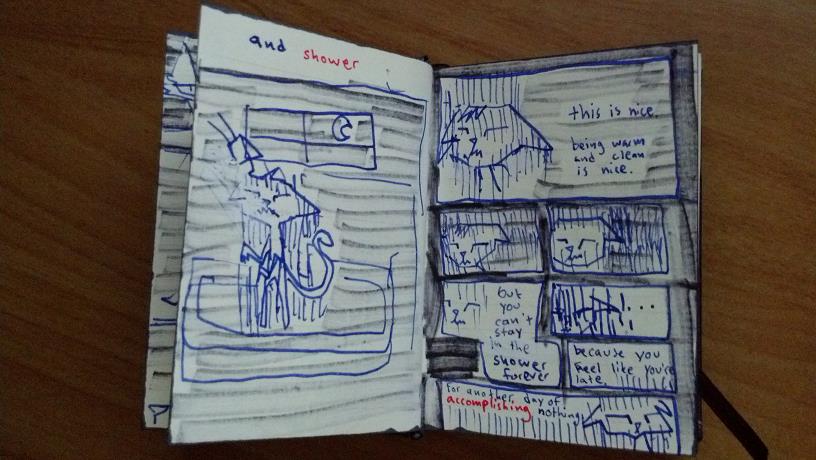 and shower
this is nice.
being warm
and clean
is nice.
but
you
can't
stay
in the
shower
forever
! ...
because you
feel like you're
late.
for another day of
accomplishing nothing